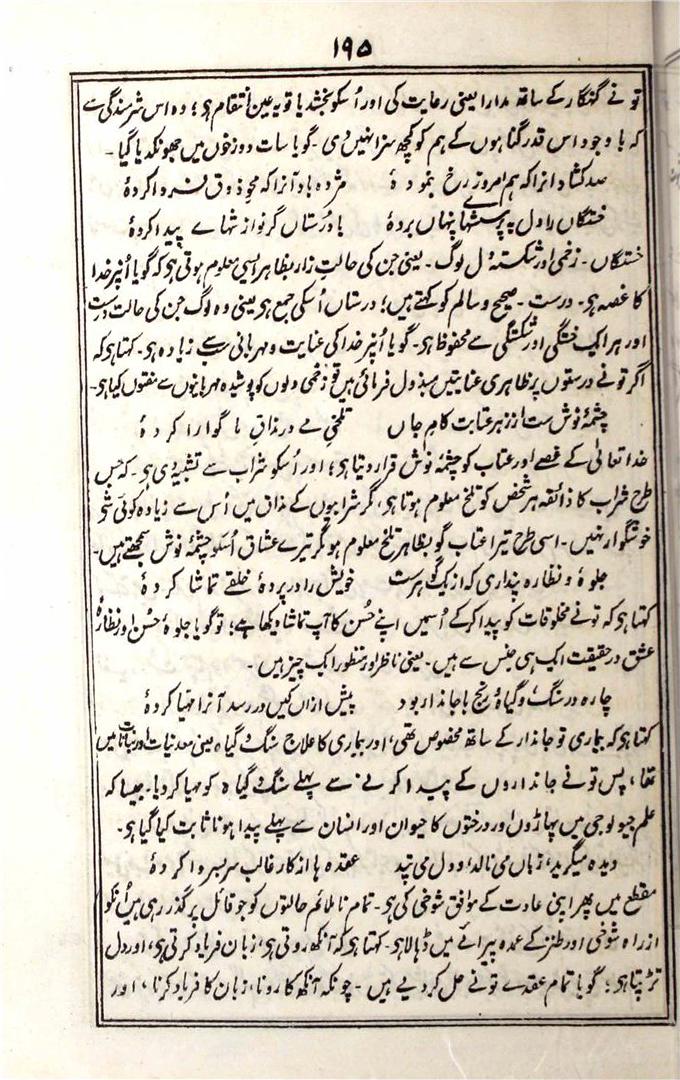 ۱۹۵
تو نے گنہگار کے ساتھ مدارا یعنی رعایت کی اور اُسکو بخشدیا تو یہ عین انتقام ہو؛ وہ اس شرمندگی سے
کہ باوجود اس قدر گناہوں کے ہم کو کچھ سزا نہیں دی۔ گویا سات دوزخوں میں جھونکدیا گیا۔
صد کشاد آنرا کہ ہم امروز رخ بنمودۂ مژدہ باد آنرا کہ محوِ ذوق فردا کردۂ
خستگاں را دل بہ پرسشہائے پنہاں بردۂ با درستاں گر نوازشہائے پیدا کردۂ
خستگاں۔ زخمی اور شکستہ دل لوگ۔ یعنی جن کی حالتِ زار بظاہر ایسی معلوم ہوتی ہو کہ گویا اُنپر خدا
کا غصہ ہو۔ درست۔ صحیح و سالم کو کہتے ہیں؛ درستاں اُسکی جمع ہو یعنی وہ لوگ جن کی حالت درست
اور ہر ایک خستگی اور شکستگی سے محفوظ ہو۔ گویا اُنپر خدا کی عنایت و مہربانی سب سے زیادہ ہو۔ کہتا ہو کہ
اگر تو نے درستوں پر ظاہری عنایتیں مبذول فرمائی ہیں تو زخمی دلوں کو پوشیدہ مہربانیوں سے مفتوں کیا ہو۔
چشمۂ نوش ست از زہر عتابت کام جاں تلخیِ مے در مذاقِ ما گوارا کردۂ
خدا تعالیٰ کے غصے اور عتاب کو چشمۂ نوش قرار دیتا ہو؛ اور اُسکو شراب سے تشبیہ دی ہو۔ کہ جس
طرح شراب کا ذائقہ ہر شخص کو تلخ معلوم ہوتا ہو، مگر شرابیوں کے مذاق میں اُس سے زیادہ کوئی شَے
خوشگوار نہیں۔ اسی طرح تیرا عتاب گو بظاہر تلخ معلوم ہو مگر تیرے عشاق اُسکو چشمۂ نوش سمجھتے ہیں۔
جلوہ و نظارہ پنداری کہ از یک گوہرست خویش را در پردۂ خلقے تماشا کردۂ
کہتا ہو کہ تو نے مخلوقات کو پیدا کر کے اُسمیں اپنے حُسن کا آپ تماشا دیکھا ہے؛ تو گویا جلوۂ حُسن اور نظارۂ
عشق در حقیقت ایک ہی جنس سے ہیں۔ یعنی ناظر اور منظور ایک چیز ہیں۔
چارہ در سنگ و گیاہ و رنج با جاندار بود پیش ازاں کیں در رسد آنرا مہیا کردۂ
کہتا ہو کہ بیماری تو جاندار کے ساتھ مخصوص تھی، اور بیماری کا علاج سنگ و گیاہ یعنی معدنیات اور نباتات میں
تھا، پس تو نے جانداروں کے پیدا کرنے سے پہلے سنگ و گیاہ کو مہیا کر دیا۔ جیسا کہ
علم جیولوجی میں پہاڑوں اور درختوں کا حیوان اور انسان سے پہلے پیدا ہونا ثابت کیا گیا ہو۔
دیدہ میگرید، زباں می نالد، و دل می تپد عقدہ ہا از کار غالب سربسر وا کردۂ
مقطع میں پھر اپنی عادت کے موافق شوخی کی ہو۔ تمام ناملائم حالتوں کو جو قائل پر گذر رہی ہیں اُنکو
از راہ شوخی اور طنز کے عمدہ پیرائے میں ڈھالا ہو۔ کہتا ہو کہ آنکھ روتی ہو، زبان فریاد کرتی ہو، اور دل
تڑپتا ہو؛ گویا تمام عقدے تو نے حل کر دیے ہیں۔ چونکہ آنکھ کا رونا، زبان کا فریاد کرنا، اور